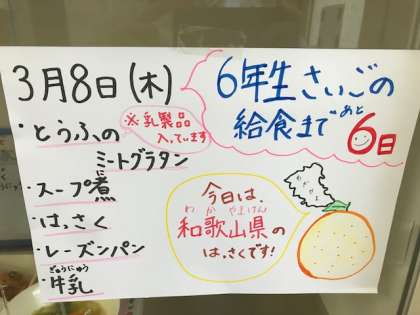 3月8日(木)
・とうふの
ミートグラタン
※乳製品
入っています
・スープ煮
・はっさく
・レーズンパン
ぎゅうにゅう
・牛乳
6年生さいごの
給食まで あと 6日
今日は、
わかやまけん
和歌山県の
はっさくです!